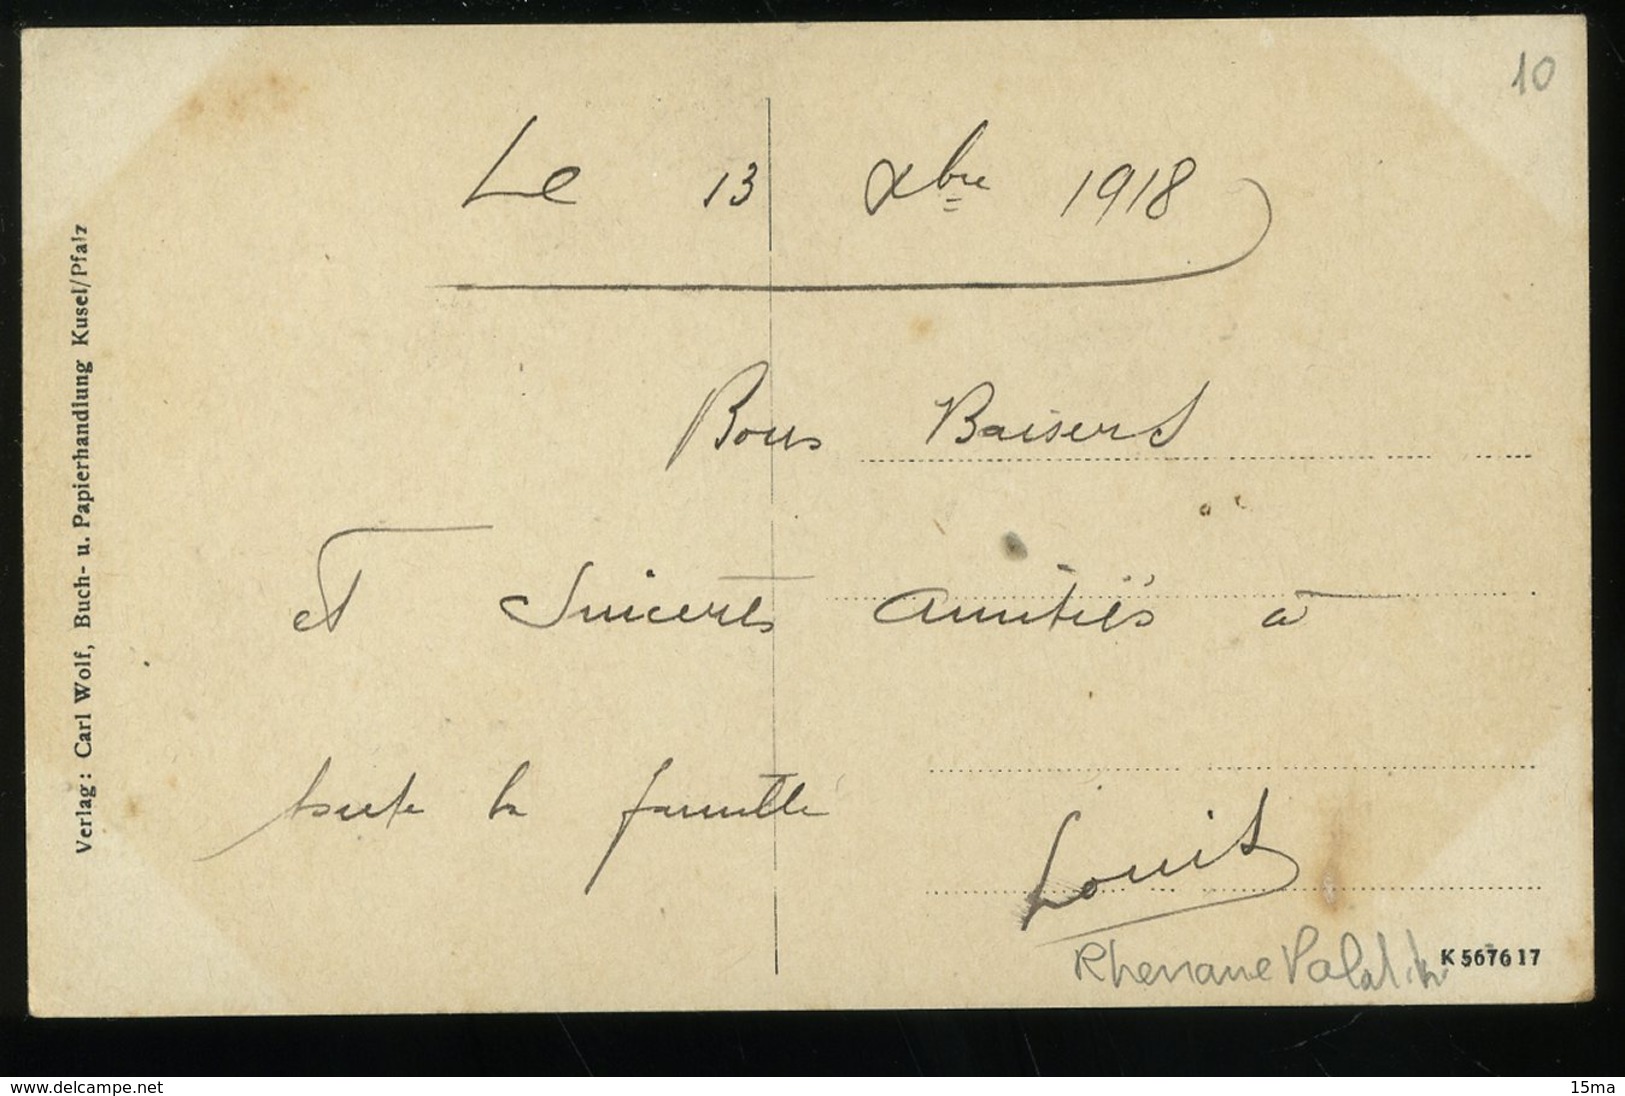 10
Le 13 Xbre 1918
Bons Baisers
et Sincères Amitiés à
toute la famille
Louis
Rhenane Palatin
K 567617
Verlag: Carl Wolf, Buch- u. Papierhandlung Kusel/Pfalz
www.delcampe.net
15ma